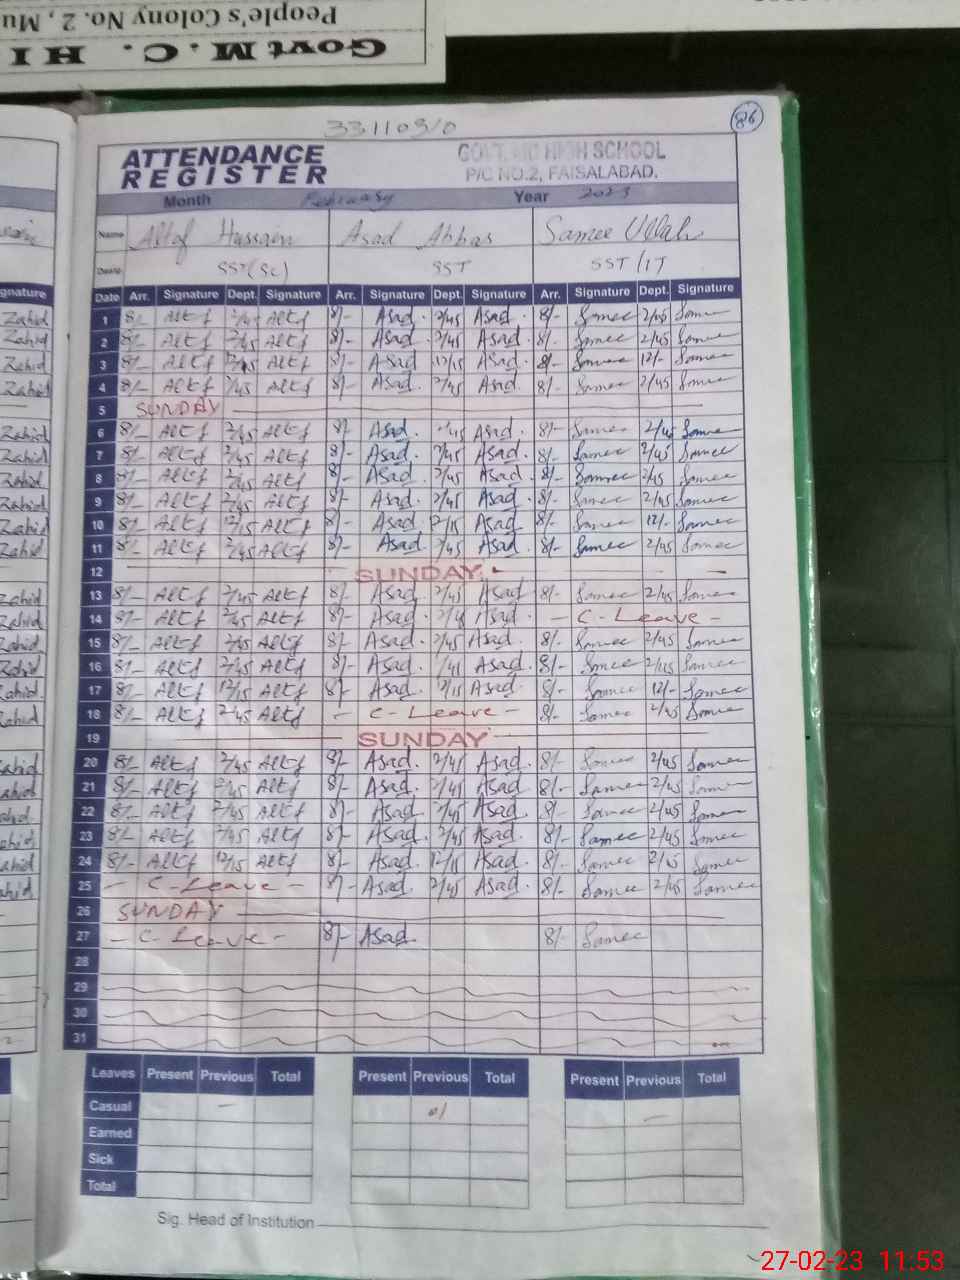 Govt M. C. HI
People's Colony No. 2, Mu
33110310
86
ATTENDANCE REGISTER
GOVT. MC HIGH SCHOOL
P/C NO.2, FAISALABAD.
Month February Year 2023
Name Altaf Hussain Asad Abbas Samee Ullah
SST(SC) SST SST/IT
gnature Date Arr. Signature Dept. Signature Arr. Signature Dept. Signature Arr. Signature Dept. Signature
Zahid 1 8/- Altf 2/45 Altf 8/- Asad. 2/45 Asad. 8/- Samee 2/45 Same
Zahid 2 8/- Altf 2/45 Altf 8/- Asad. 2/45 Asad. 8/- Samee 2/45 Same
Zahid 3 8/- Altf 12/15 Altf 8/- Asad. 12/15 Asad. 8/- Samee 12/- Same
Zahid 4 8/- Altf 2/45 Altf 8/- Asad. 2/45 Asad. 8/- Samee 2/45 Same
5 SUNDAY
Zahid 6 8/- Altf 2/45 Altf 8/- Asad. 2/45 Asad. 8/- Samee 2/45 Samee
Zahid 7 8/- Altf 2/45 Altf 8/- Asad. 2/45 Asad. 8/- Samee 2/45 Samee
Zahid 8 8/- Altf 2/45 Altf 8/- Asad. 2/45 Asad. 8/- Samee 2/45 Samee
Zahid 9 8/- Altf 2/45 Altf 8/- Asad. 2/45 Asad. 8/- Samee 2/45 Samee
Zahid 10 8/- Altf 12/15 Altf 8/- Asad. 12/15 Asad. 8/- Samee 12/- Samee
Zahid 11 8/- Altf 2/45 Altf 8/- Asad. 2/45 Asad. 8/- Samee 2/45 Samee
12 SUNDAY.
Zahid 13 8/- Altf 2/45 Altf 8/- Asad. 2/45 Asad 8/- Samee 2/45 Same
Zahid 14 8/- Altf 2/45 Altf 8/- Asad 2/45 Asad. - C-Leave -
Zahid 15 8/- Altf 2/45 Altf 8/- Asad. 2/45 Asad. 8/- Samee 2/45 Same
Zahid 16 8/- Altf 2/45 Altf 8/- Asad. 2/45 Asad. 8/- Smee 2/45 Samee
Zahid. 17 8/- Altf 12/15 Altf 8/- Asad. 12/15 Asad. 8/- Samee 12/- Samee
Zahid 18 8/- Altf 2/45 Altf - C-Leave - 8/- Samee 2/45 Samee
19 SUNDAY
Zahid 20 8/- Altf 2/45 Altf 8/- Asad. 2/45 Asad. 8/- Samee 2/45 Samee
Zahid 21 8/- Altf 2/45 Altf 8/- Asad. 2/45 Asad. 8/- Samee 2/45 Same
Zahid 22 8/- Altf 2/45 Altf 8/- Asad. 2/45 Asad 8/- Samee 2/45 Same
Zahid 23 8/- Altf 2/45 Altf 8/- Asad. 2/45 Asad. 8/- Samee 2/45 Smee
Zahid 24 8/- Altf 12/15 Altf 8/- Asad. 12/15 Asad. 8/- Samee Samee
Zahid 25 - C-Leave - 8/- Asad. 2/45 Asad. 8/- Samee 2/45 Samee
26 SUNDAY
27 - C-Leave - 8/- Asad 8/- Samee
28
29
30
31
Leaves Present Previous Total Present Previous Total Present Previous Total
Casual - 01 -
Earned
Sick
Total
Sig. Head of Institution
27-02-23 11:53